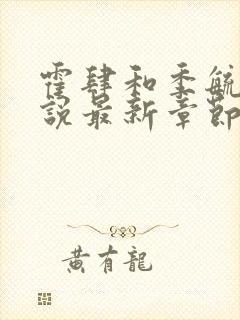 霍肆和季毓
說最新章節
黃有龍